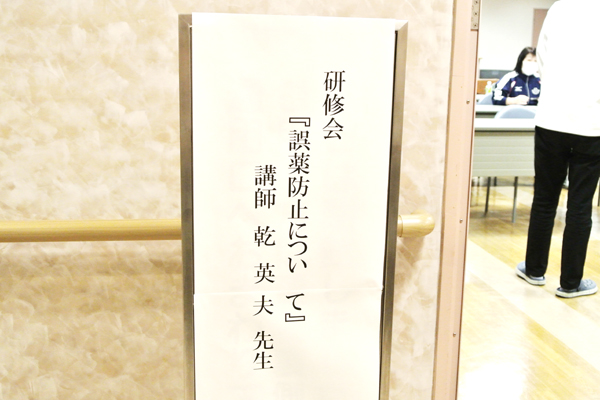 研修会
『誤薬防止について』
講師 乾 英夫 先生